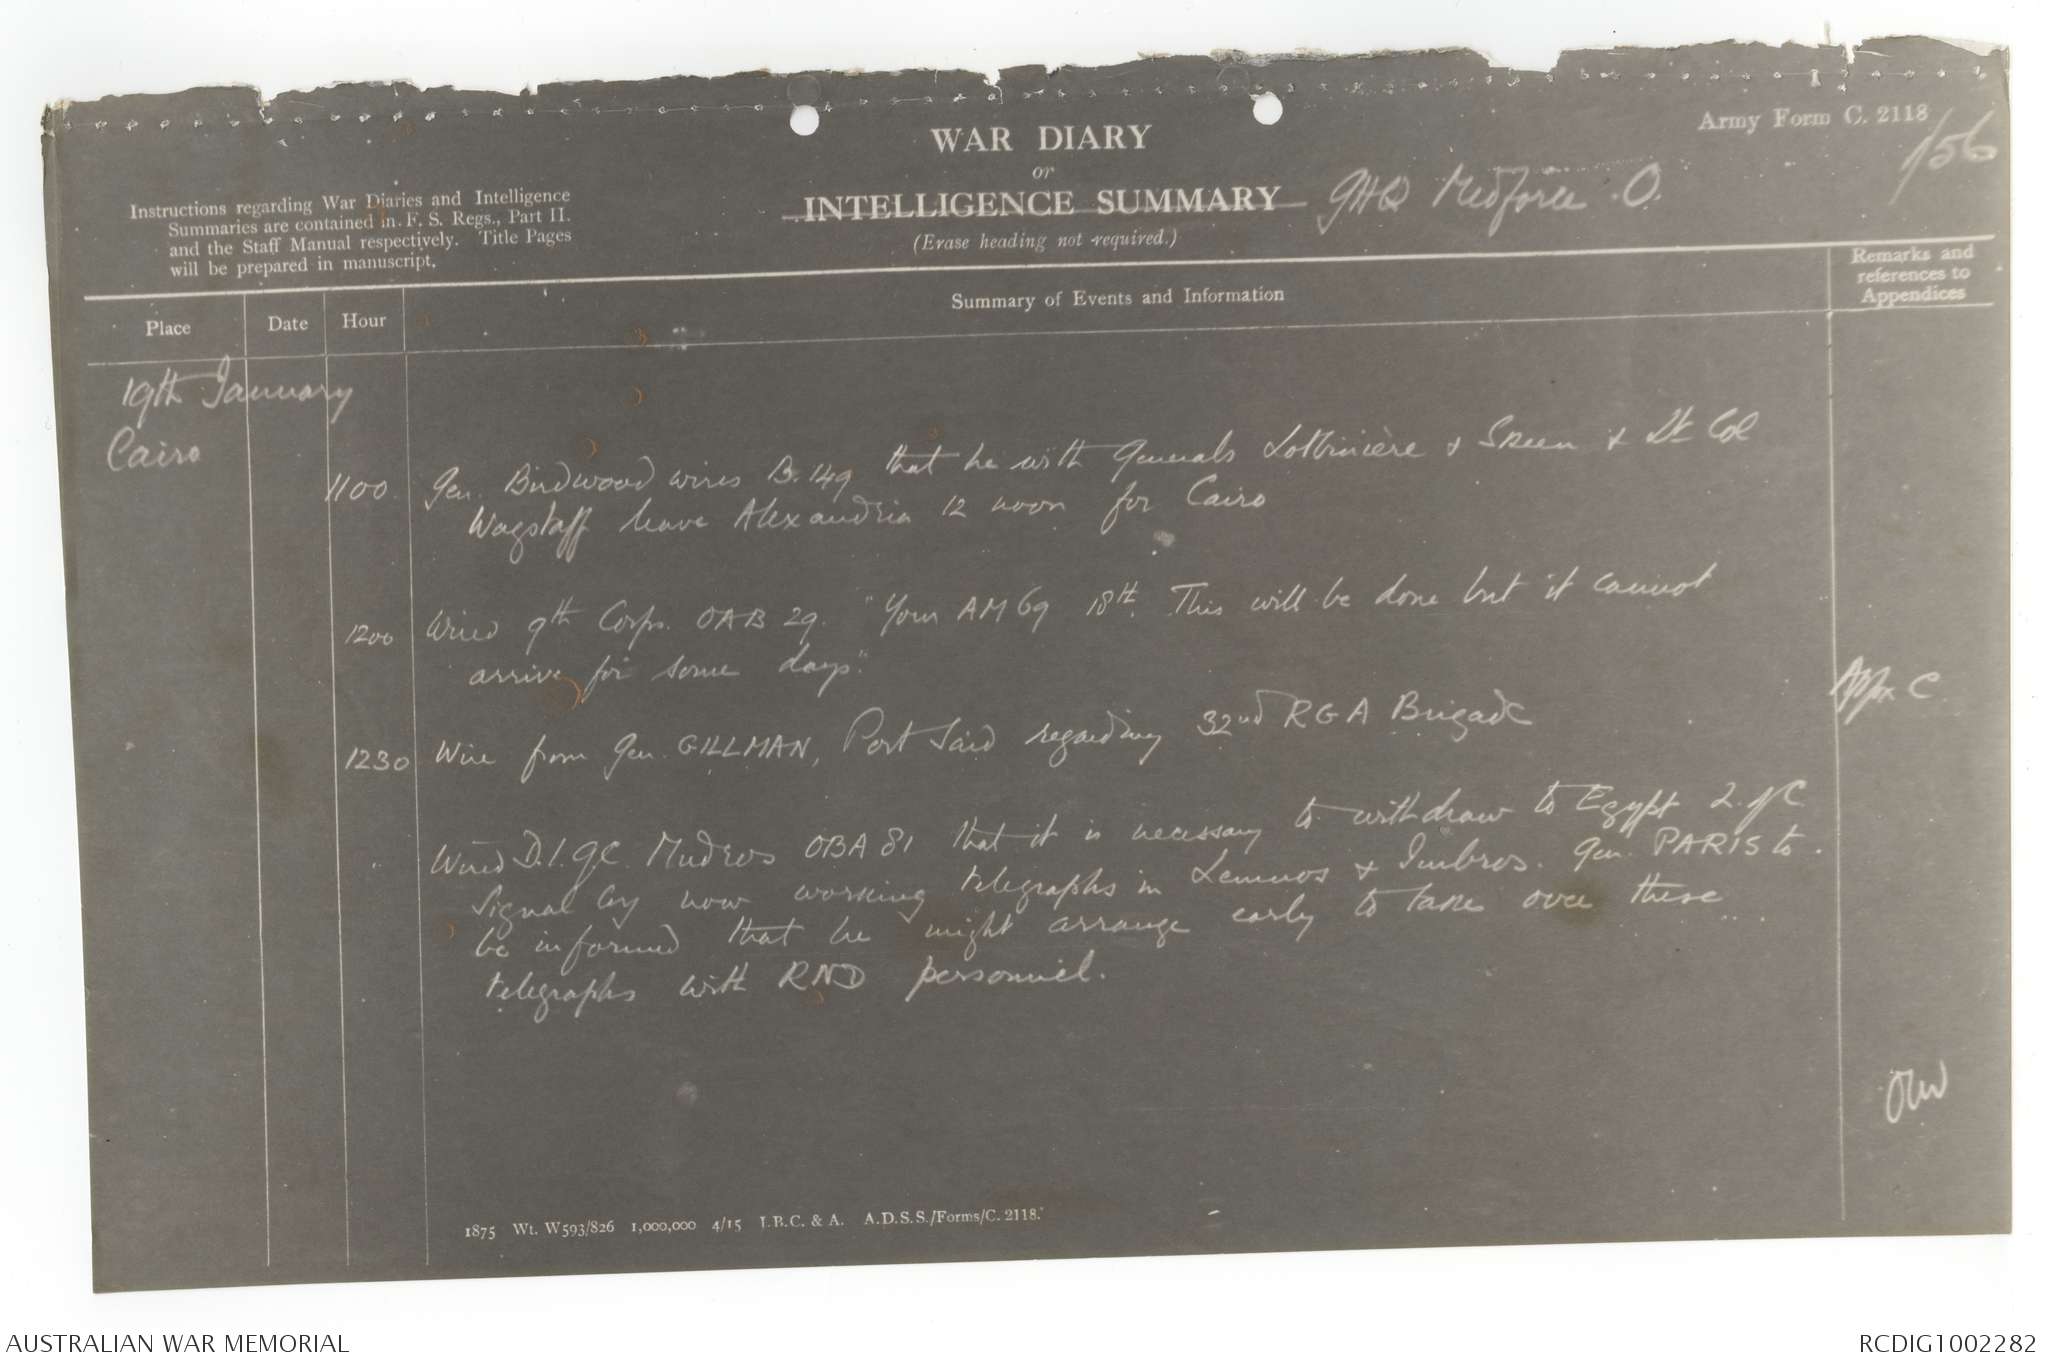 Army Form C. 2118
156
WAR DIARY
or
INTELLIGENCE SUMMARY
(Erase heading not required.)
GHQ Medforce. O.
Instructions regarding War Diaries and Intelligence
Summaries are contained in F. S. Regs., Part II.
and the Staff Manual respectively. Title Pages
will be prepared in manuscript.
Place
Date
Hour
Summary of Events and Information
Remarks and
references to
Appendices
19th January
Cairo
1100. Gen. Birdwood wires B.149 that he with Generals Lotbinière & Skeen & Lt Col
Wagstaff leave Alexandria 12 noon for Cairo
1200 Wired 9th Corps. OAB 29. "Your AM 69 18th. This will be done but it cannot
arrive for some days."
1230 Wire from Gen. GILLMAN, Port Said regarding 32nd RGA Brigade
Appx C
Wired D.I.G.C. Mudros OBA 81 that it is necessary to withdraw to Egypt L. of C
Signal Coy now working telegraphs in Lemnos & Imbros. Gen. PARIS to
be informed that he might arrange early to take over these
telegraphs with RND personnel.
1875 Wt. W593/826 1,000,000 4/15 J.B.C. & A. A.D.S.S./Forms/C. 2118.
AUSTRALIAN WAR MEMORIAL
RCDIG1002282